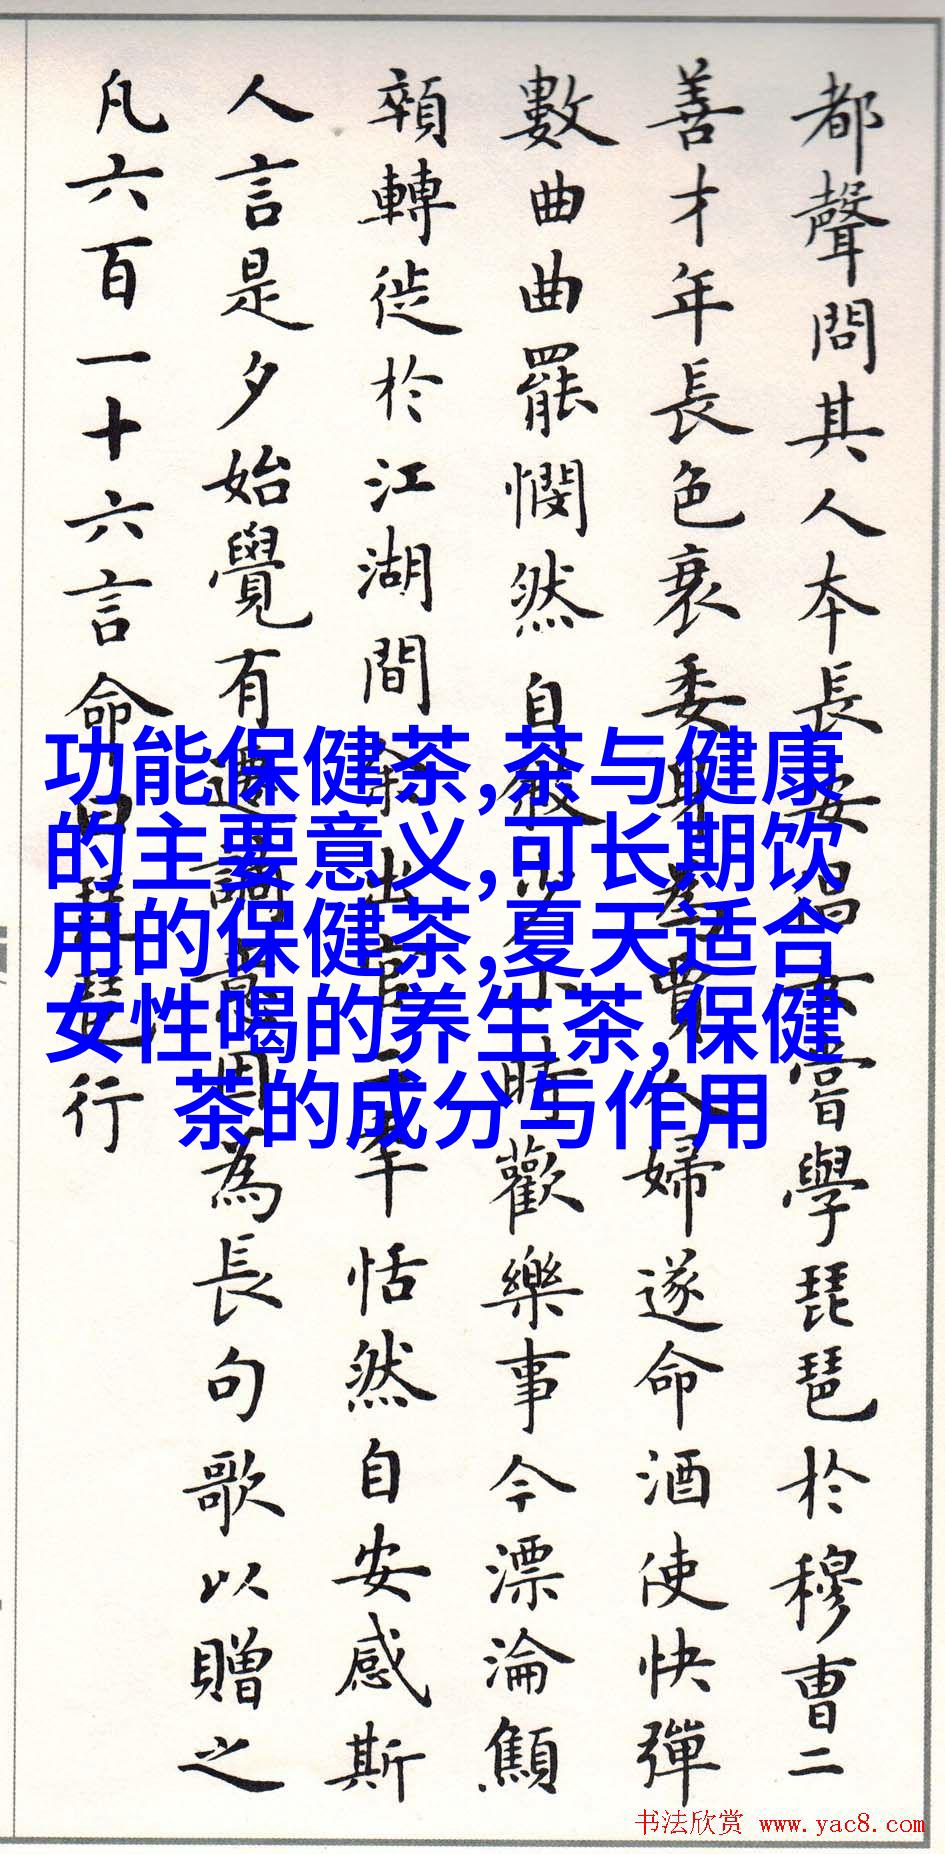 都聲問其人本長安倡女嘗學琵琶於穆曹二
善才年長色衰委身為賈人婦遂命酒使快彈
數曲曲罷憫然自敘少小時歡樂事今漂淪顦
顇轉徙於江湖間余出官二年恬然自安感斯
人言是夕始覺有遷謫意因為長句歌以贈之
凡六百一十六言命曰琵琶行
功能保健茶,茶与健康
的主要意义,可长期饮
用的保健茶,夏天适合
女性喝的养生茶,保健
茶的成分与作用
书法欣赏 www.yac8.com